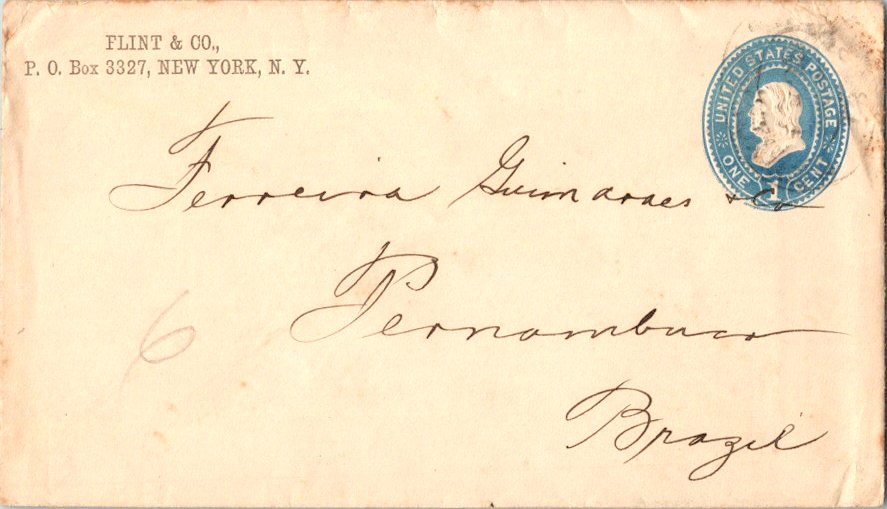 FLINT & CO.,
P. O. Box 3327, NEW YORK, N. Y.
UNITED STATES POSTAGE
ONE CENT
1
Ferreira Guimaraes & Co
Pernambuco
Brazil
6